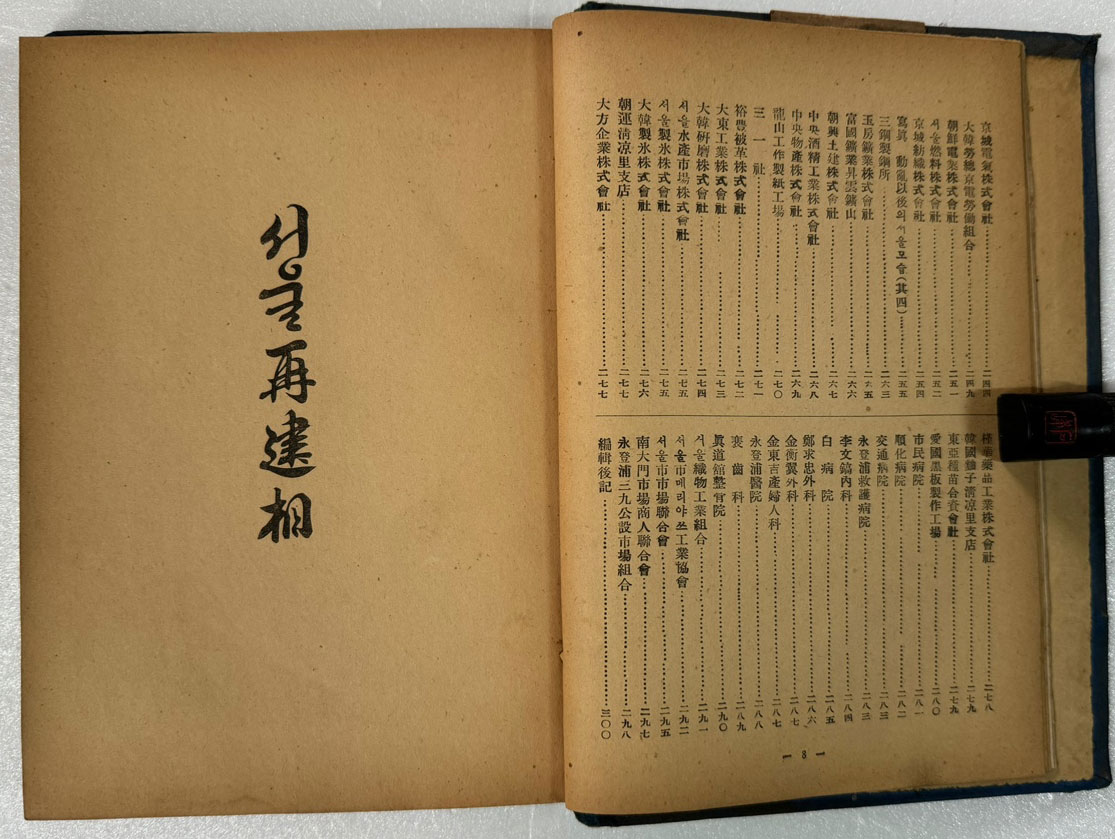 京城電氣株式會社 二四四
大韓勞總京電勞働組合 二四九
朝鮮電業株式會社 二五一
서울燃料株式會社 二五二
京城紡織株式會社 二五四
寫眞 動亂以後의서울모습(其四) 二五五
三鋼製鋼所 二六三
玉房鑛業株式會社 二六五
富國鑛業昇雲鑛山 二六六
朝興土建株式會社 二六七
中央酒精工業株式會社 二六八
中央物産株式會社 二六九
龍山工作製紙工場 二七〇
三一社 二七一
裕豊被革株式會社 二七二
大東工業株式會社 二七三
大韓硏磨株式會社 二七四
서울水産市場株式會社 二七五
서울製氷株式會社 二七五
大韓製氷株式會社 二七六
朝運淸凉里支店 二七七
大方企業株式會社 二七七
藥品工業株式會社 二七八
韓國 子淸凉里支店 二七九
東亞種苗合資會社 二七九
愛國黑板製作工場 二八〇
市民病院 二八一
順化病院 二八二
交通病院 二八三
永登浦救護病院 二八三
李文鎬內科 二八四
白病院 二八五
鄭求忠外科 二八六
金衡翼外科 二八七
金東吉産婦人科 二八七
永登浦醫院 二八八
裵齒科 二八九
眞道舘整骨院 二九〇
서울織物工業組合 二九一
서울市메리야쓰工業協會 二九二
서울市市場聯合會 二九五
南大門市場商人聯合會 二九七
永登浦三九公設市場組合 二九八
編輯後記 三〇〇
— 8 —
서울再建相